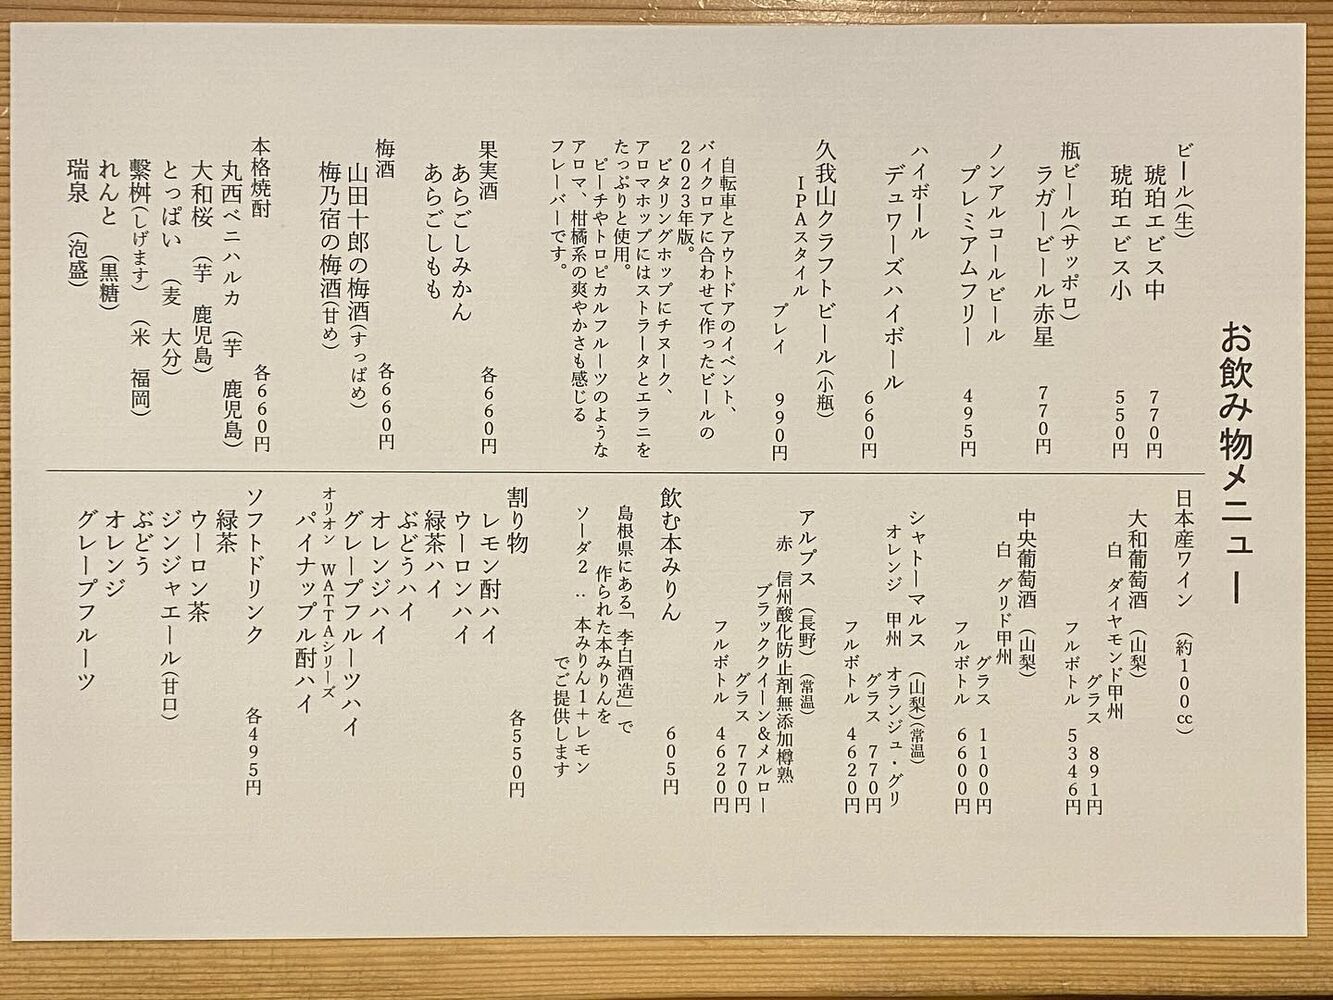 お飲み物メニュー
ビール(生)
琥珀エビス中 770円
琥珀エビス小 550円
瓶ビール(サッポロ)
ラガービール赤星 770円
ノンアルコールビール
プレミアムフリー 495円
ハイボール
デュワーズハイボール
660円
久我山クラフトビール(小瓶)
IPAスタイル
プレイ 990円
自転車とアウトドアのイベント、
バイクロアに合わせて作ったビールの
2023年版。
ビタリングホップにチヌーク、
アロマホップにはストラータとエラニを
たっぷりと使用。
ピーチやトロピカルフルーツのような
アロマ、柑橘系の爽やかさも感じる
フレーバーです。
果実酒 各660円
あらごしみかん
あらごしもも
梅酒 各660円
山田十郎の梅酒(すっぱめ)
梅乃宿の梅酒(甘め)
本格焼酎 各660円
丸西ベニハルカ (芋 鹿児島)
大和桜 (芋 鹿児島)
とっぱい (麦 大分)
繋桝(しげます) (米 福岡)
れんと (黒糖)
瑞泉 (泡盛)
日本産ワイン (約100cc)
大和葡萄酒 (山梨)
白 ダイヤモンド甲州
グラス 891円
フルボトル 5346円
中央葡萄酒 (山梨)
白 グリド甲州
グラス 1100円
フルボトル 6600円
シャトーマルス (山梨)(常温)
オレンジ 甲州 オランジュ・グリ
グラス 770円
フルボトル 4620円
アルプス (長野) (常温)
赤 信州酸化防止剤無添加樽熟
ブラッククイーン&メルロー
グラス 770円
フルボトル 4620円
飲む本みりん 605円
島根県にある「李白酒造」で
作られた本みりんを
ソーダ2:本みりん1+レモン
でご提供します
割り物 各550円
レモン酎ハイ
ウーロンハイ
緑茶ハイ
ぶどうハイ
オレンジハイ
グレープフルーツハイ
オリオン WATTAシリーズ
パイナップル酎ハイ
ソフトドリンク 各495円
緑茶
ウーロン茶
ジンジャエール(甘口)
ぶどう
オレンジ
グレープフルーツ